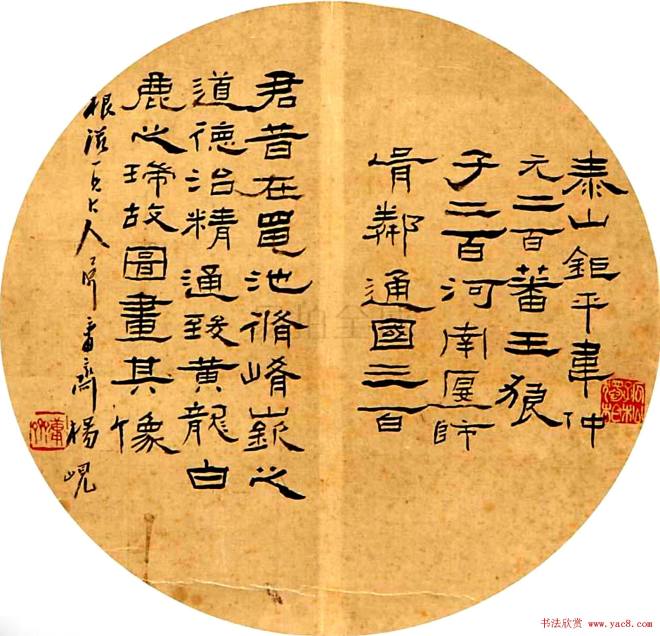 泰山鉅平韋仲
元二百蕃王狼
子二百河南匽師
胥鄰通國三百
君昔在黽池脩崤嶔之
道德治精通致黃龍白
鹿之瑞故圖畫其像
人 楊峴
书法欣赏 www.yac8.com